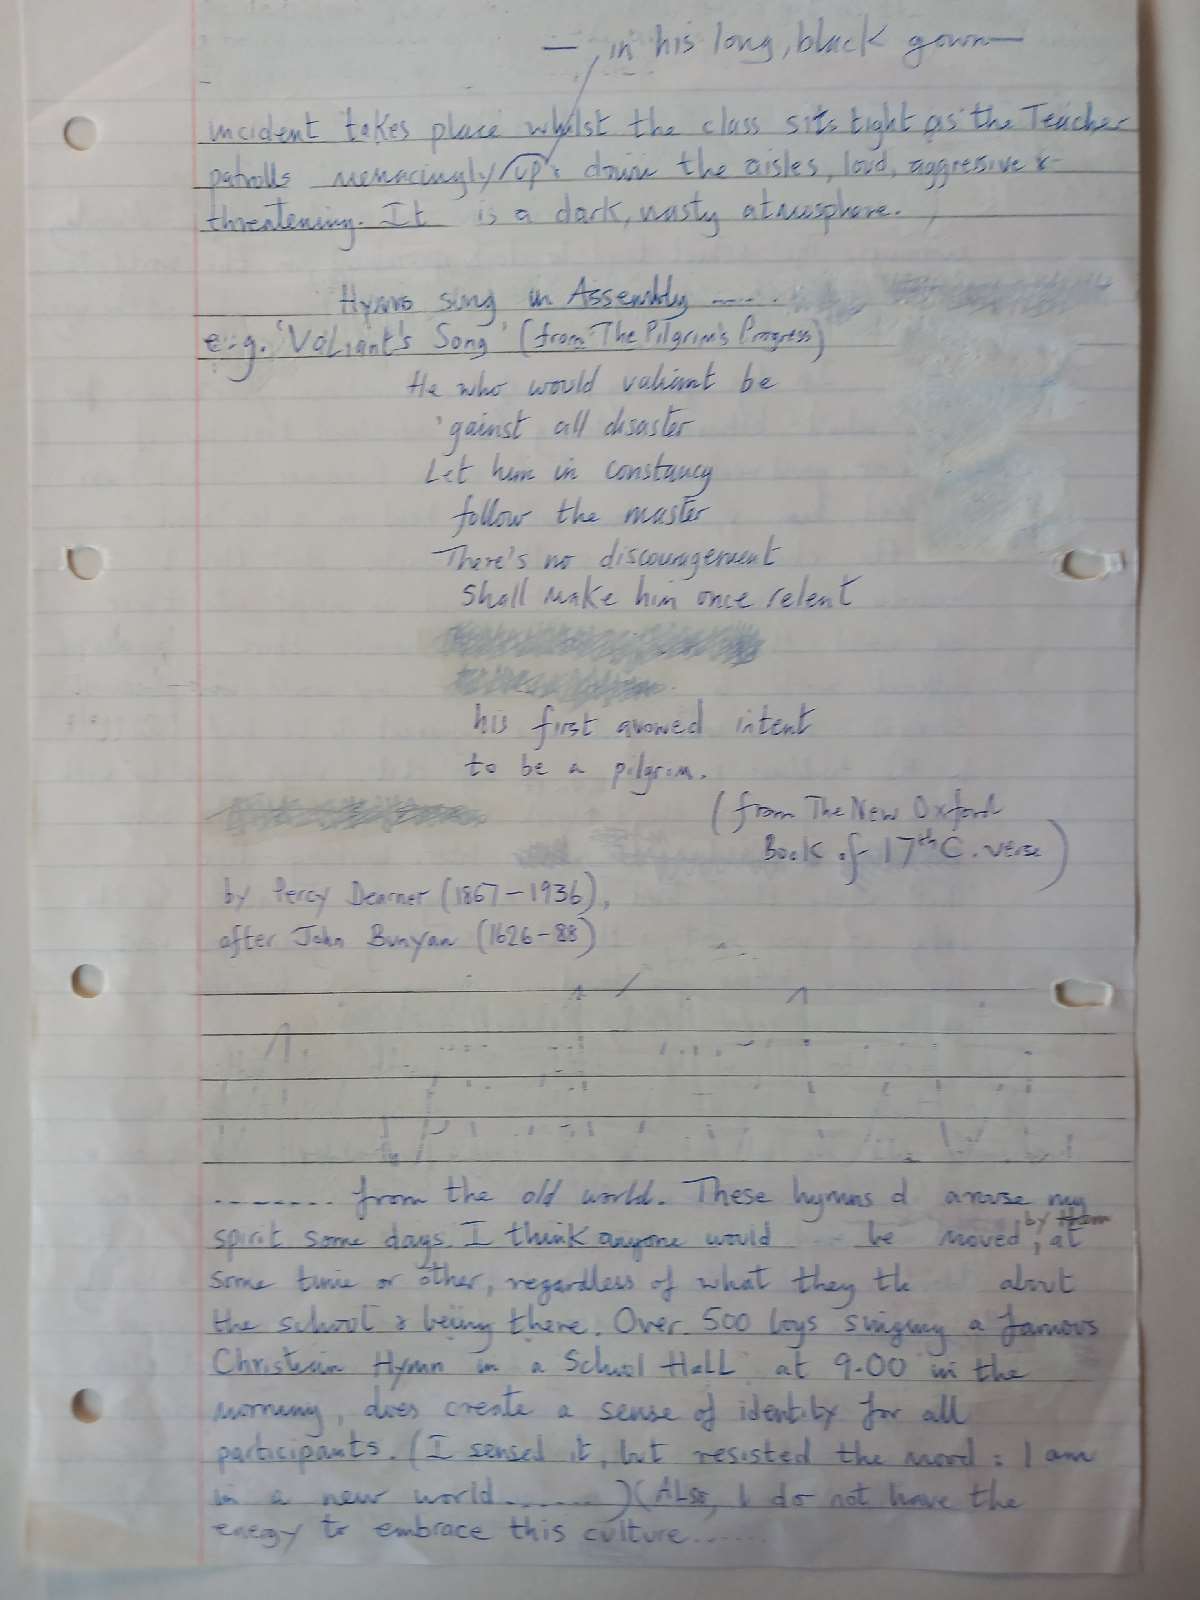 — , in his long, black gown —
incident takes place whilst the class sits tight as the Teacher
patrolls menacingly / up & down the aisles, loud, aggressive &
threatening. It is a dark, nasty atmosphere.
Hymns sung in Assembly .....
e.g. 'Valiant's Song' (from The Pilgrim's Progress)
He who would valiant be
'gainst all disaster
Let him in constancy
follow the master
There's no discouragement
shall make him once relent
his first avowed intent
to be a pilgrim.
(from The New Oxford
Book of 17th C. verse)
by Percy Dearmer (1867-1936),
after John Bunyan (1626-88)
........ from the old world. These hymns d arouse my
spirit some days. I think anyone would be moved, by them at
some time or other, regardless of what they th about
the school & being there. Over 500 boys singing a famous
Christian Hymn in a School Hall at 9.00 in the
morning, does create a sense of identity for all
participants. (I sensed it, but resisted the mood : I am
in a new world.......) (Also, I do not have the
energy to embrace this culture.......